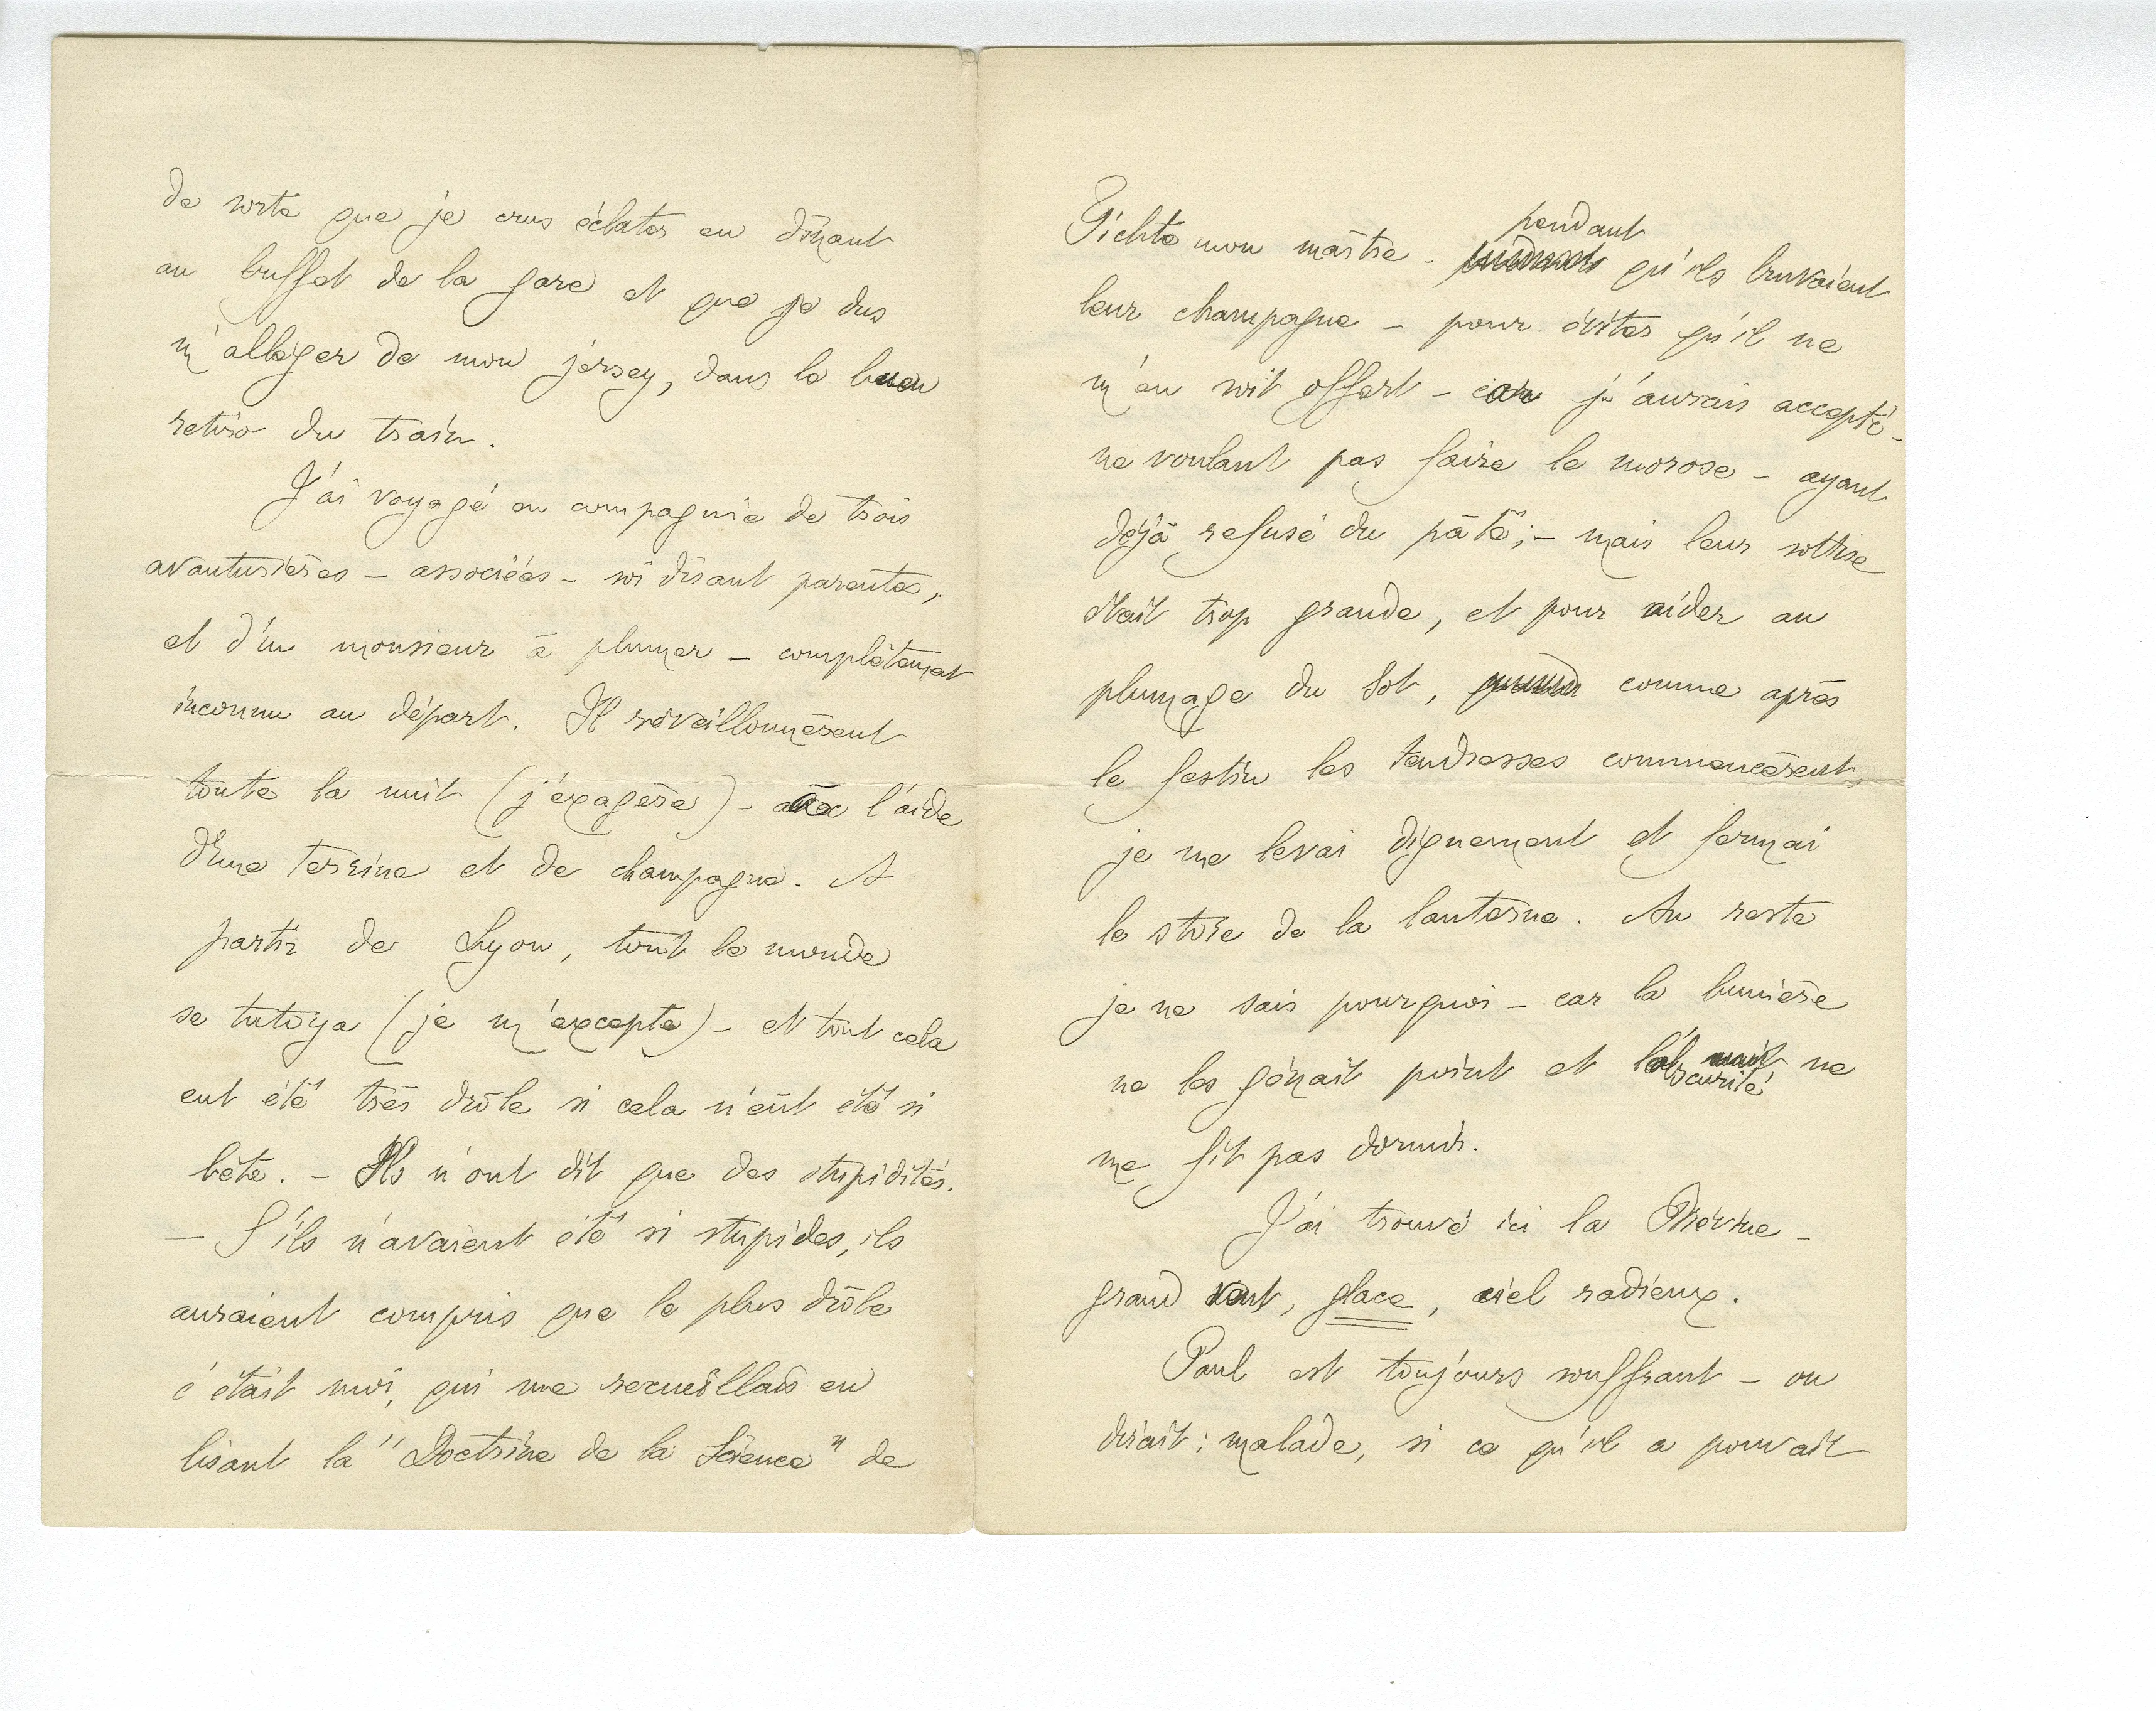 de sorte que je crus éclater en dînant
au buffet de la gare et que je dus
m'alléger de mon jersey, dans le buen
retiro du train.
J'ai voyagé en compagnie de trois
avanturières – associées – soi disant parentes,
et d'un monsieur à plumer – complètement
inconnu au départ. Il réveillonnèrent
toute la nuit (j'éxagère) – à l'aide
d'une terrine et de champagne. A
partir de Lyon, tout le monde
se tutoya (je m'excepte) – et tout cela
eut été très drôle si cela n'eût été si
bête. – Ils n'ont dit que des stupidités.
– S'ils n'avaient été si stupides, ils
auraient compris que le plus drôle
c'était moi, qui me recueillais en
lisant la "Doctrine de la Science" de
Fichte mon maître – pendant qu'ils bruvaient
leur champagne – pour éviter qu'il ne
m'en soit offert – car j'aurais accepté –
ne voulant pas faire le morose – ayant
déjà refusé du pâté ; – mais leur sottise
était trop grande, et pour aider au
plumage du Sot, comme après
le festin les tendresses commencèrent
je me levai dignement et fermai
le store de la lanterne. Au reste
je ne sais pourquoi – car la lumière
ne les gênait point et l'obscurité ne
me fit pas dormir.
J'ai trouvé ici la Brévine –
grand vent, glace, ciel radieux.
Paul est toujours souffrant – on
dirait : malade, si ce qu'il a pouvait